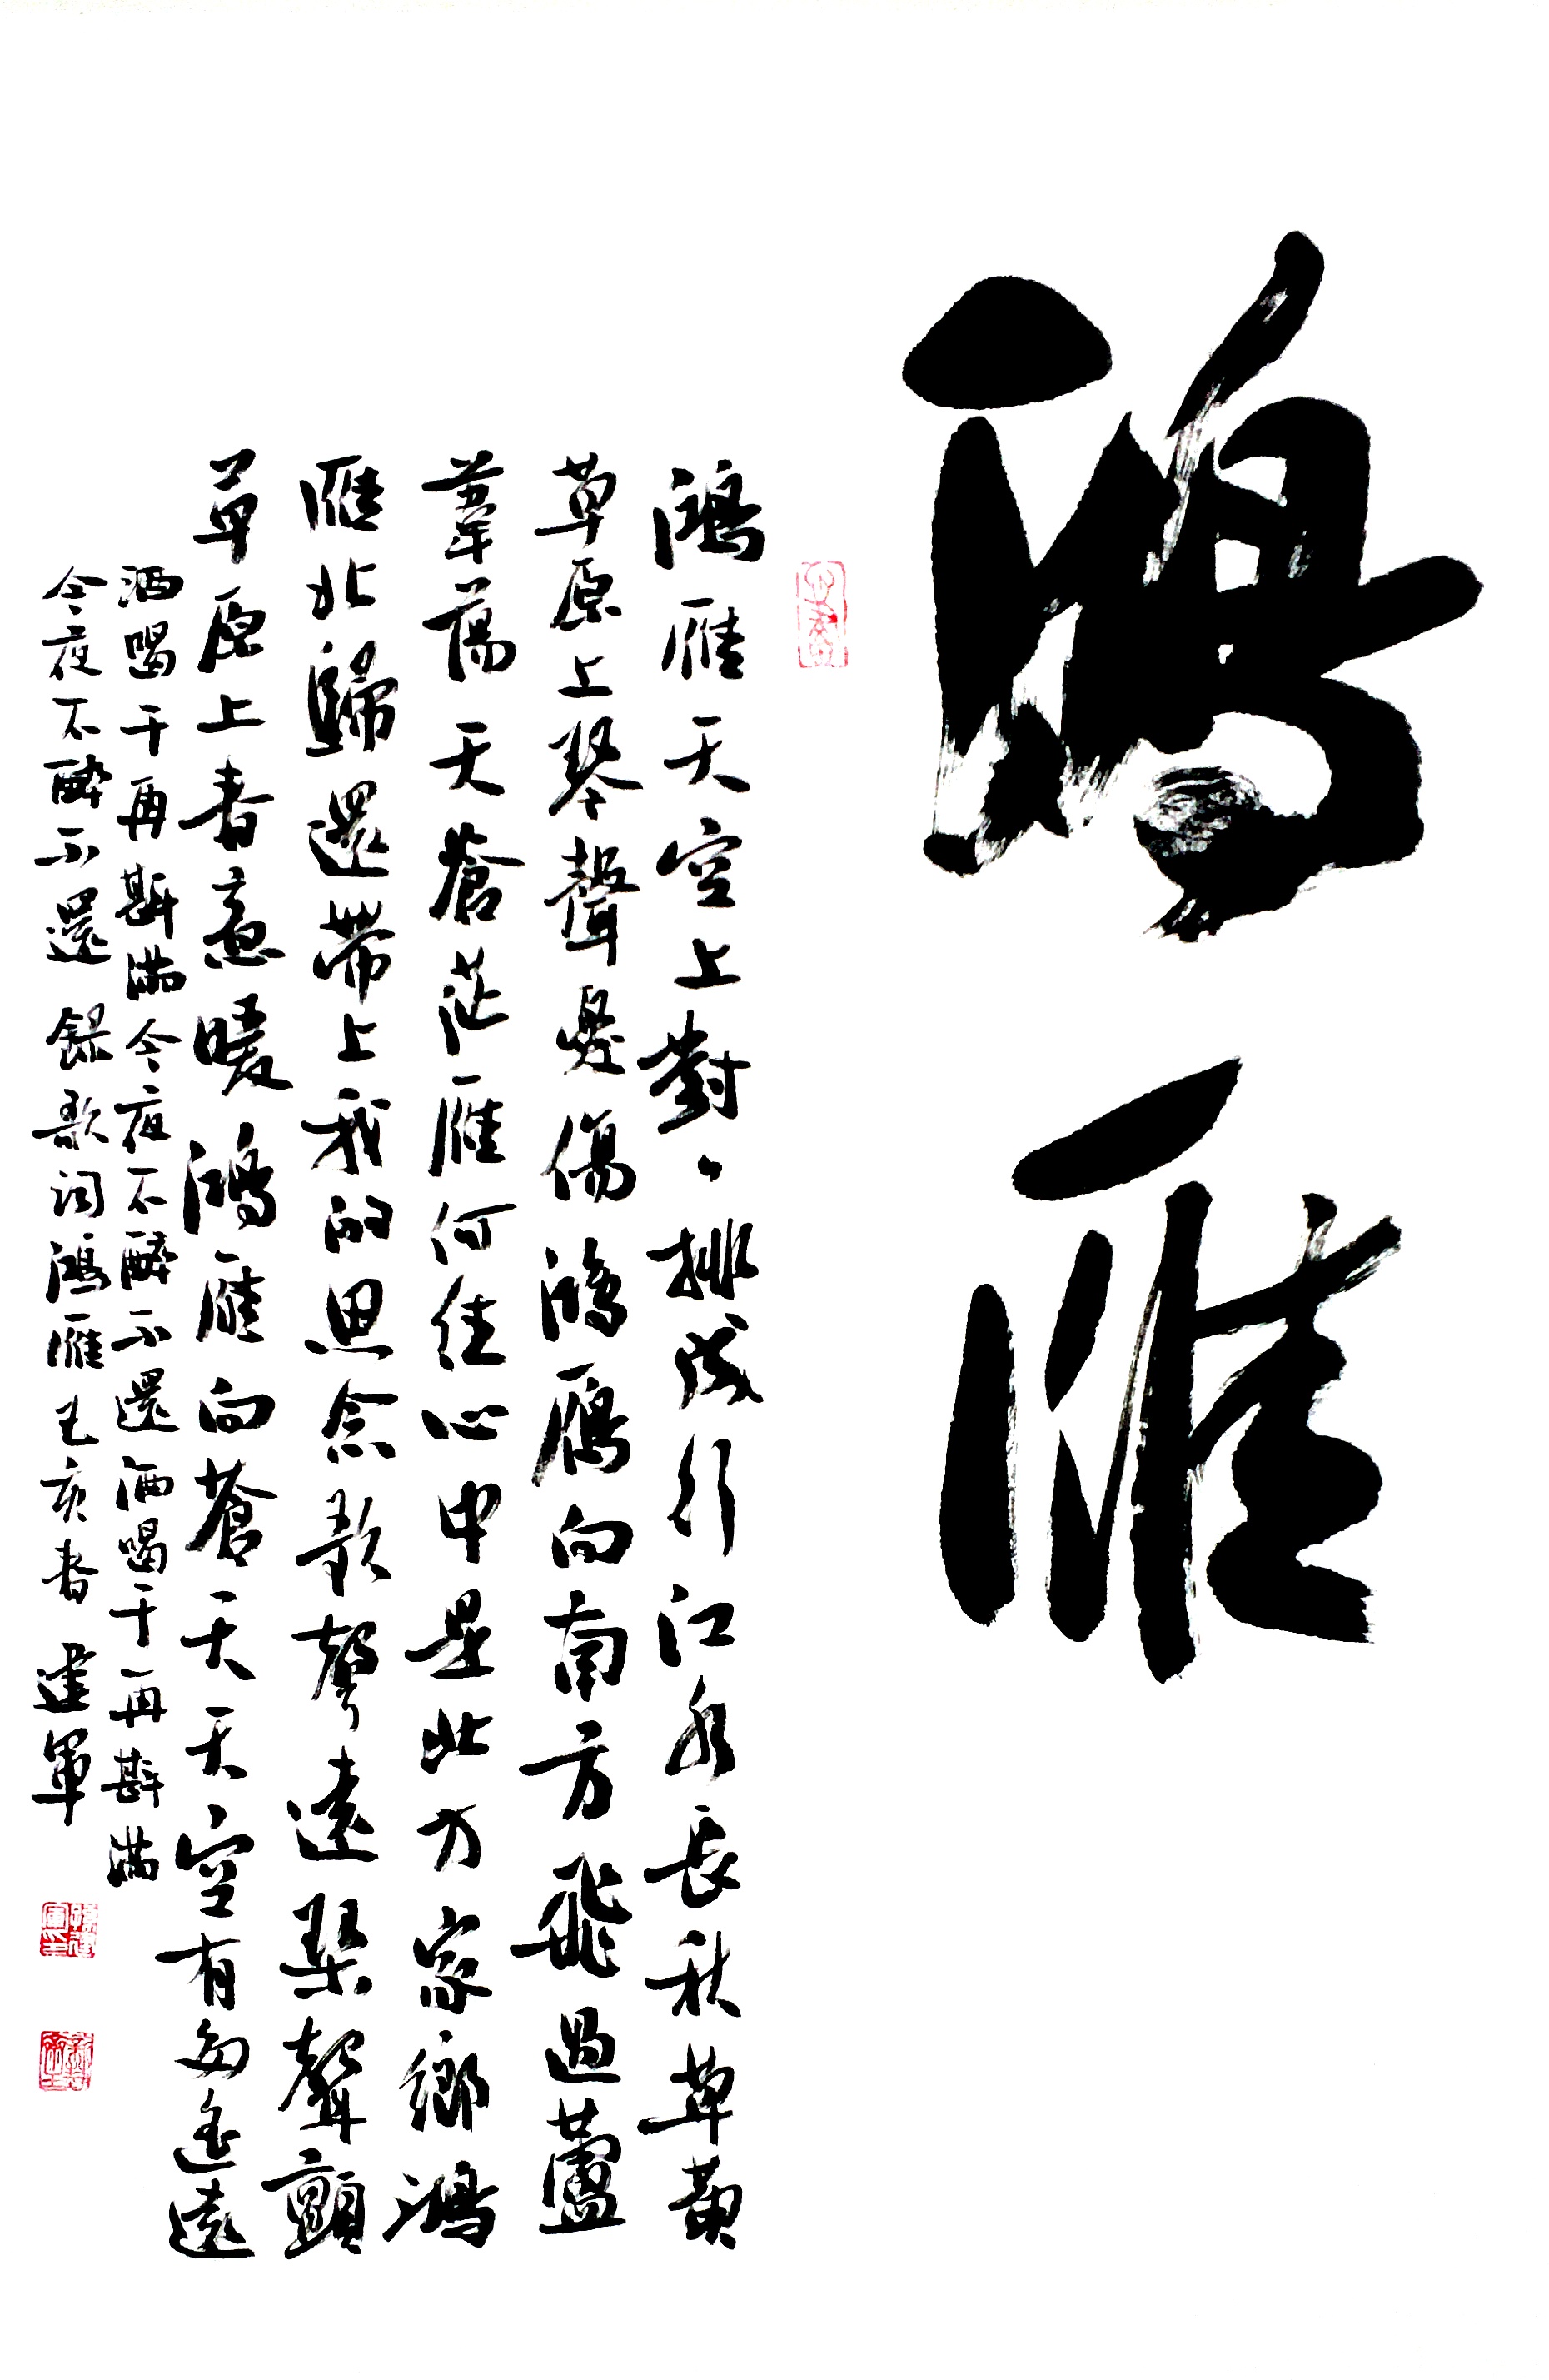 鴻雁
鴻雁天空上對、排成行江水長秋草黄
草原上琴聲憂傷鴻鴈向南方飛過蘆
葦蕩天蒼茫雁何往心中是北方家鄉鴻
雁北歸還帶上我的思念歌聲遠琴聲顫
草原上春意暖鴻雁向蒼天天空有多遙遠
酒喝干再斟滿今夜不醉不還酒喝干再斟滿
今夜不醉不還 錄歌词鴻雁己亥春 建軍